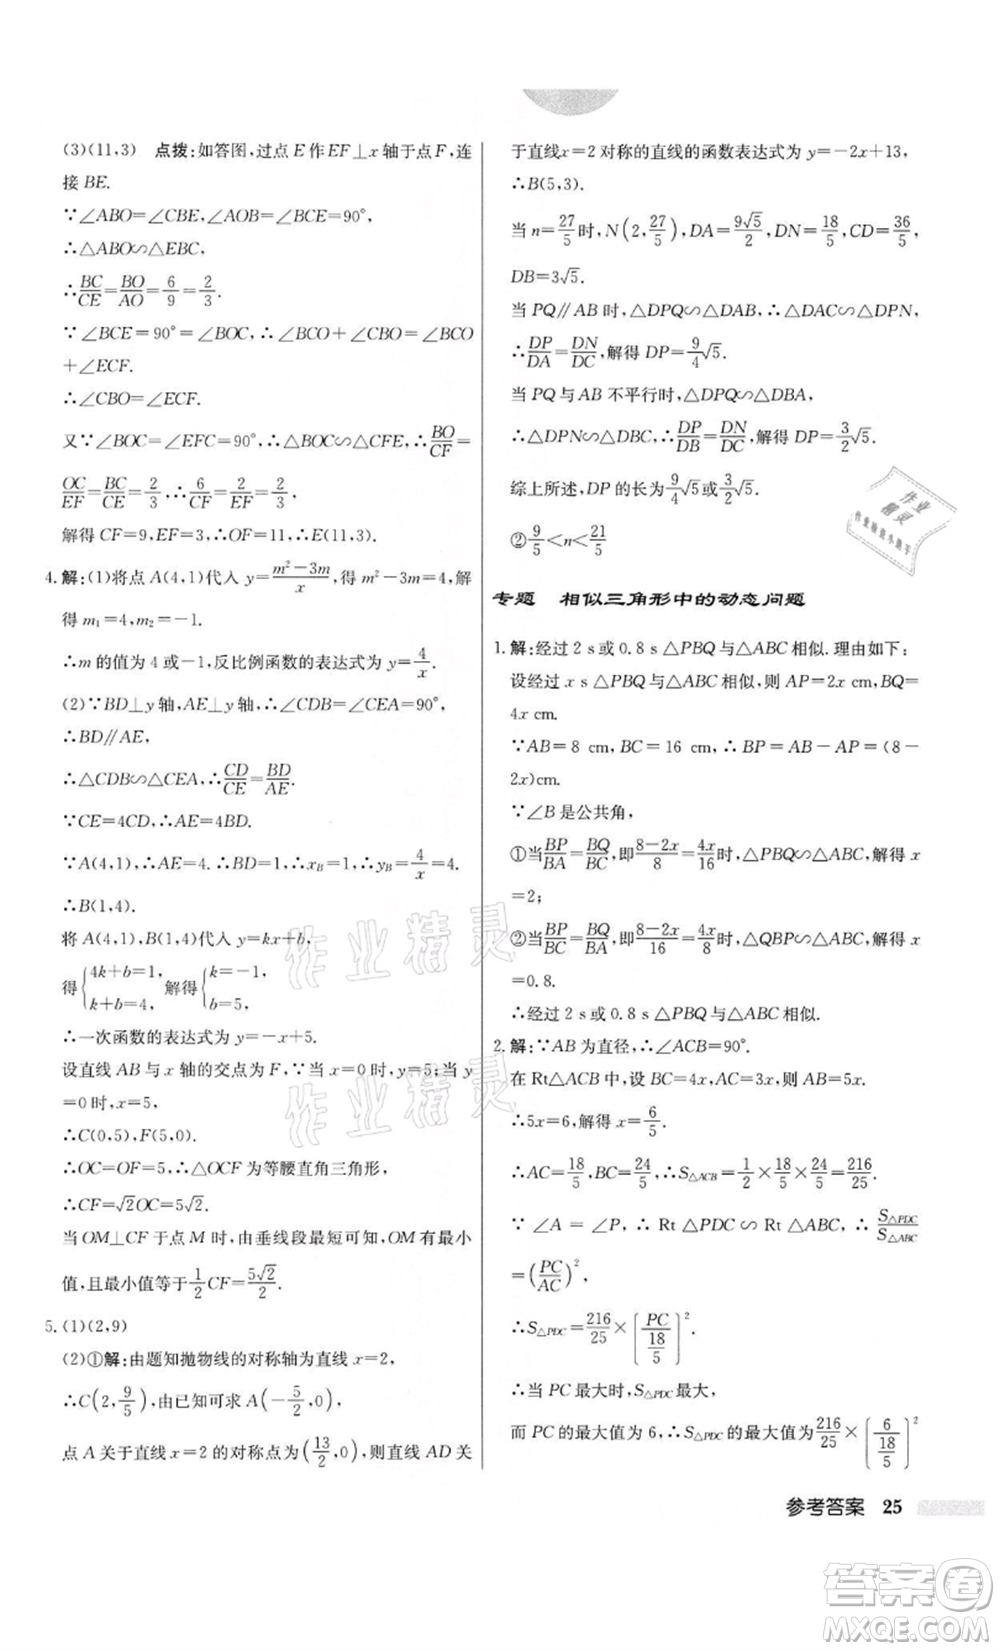 (3)(11,3) 点拨:如答图,过点E作EF⊥x轴于点F,连
接BE.
∵∠ABO=∠CBE,∠AOB=∠BCE=90°,
∴△ABO∽△EBC,
∴BC/CE=BO/AO=6/9=2/3.
∵∠BCE=90°=∠BOC,∴∠BCO+∠CBO=∠BCO
+∠ECF.
∴∠CBO=∠ECF.
又∵∠BOC=∠EFC=90°,∴△BOC∽△CFE,∴BO/CF=
OC/EF=BC/CE=2/3,∴6/CF=2/EF=2/3,
解得CF=9,EF=3,∴OF=11,∴E(11,3).
4.解:(1)将点A(4,1)代入y=(m²-3m)/x,得m²-3m=4,解
得m₁=4,m₂=-1.
∴m的值为4或-1,反比例函数的表达式为y=4/x.
(2)∵BD⊥y轴,AE⊥y轴,∴∠CDB=∠CEA=90°,
∴BD∥AE,
∴△CDB∽△CEA,∴CD/CE=BD/AE.
∵CE=4CD,∴AE=4BD.
∵A(4,1),∴AE=4.∴BD=1,∴x_B=1,∴y_B=4/x=4.
∴B(1,4).
将A(4,1),B(1,4)代入y=kx+b,
得{4k+b=1, k+b=4, 解得{k=-1, b=5,
∴一次函数的表达式为y=-x+5.
设直线AB与x轴的交点为F,∵当x=0时,y=5;当y
=0时,x=5,
∴C(0,5),F(5,0).
∴OC=OF=5,∴△OCF为等腰直角三角形,
∴CF=√2OC=5√2.
当OM⊥CF于点M时,由垂线段最短可知,OM有最小
值,且最小值等于1/2CF=5√2/2.
5.(1)(2,9)
(2)①解:由题知抛物线的对称轴为直线x=2,
∴C(2,9/5),由已知可求A(-5/2,0),
点A关于直线x=2的对称点为(13/2,0),则直线AD关
于直线x=2对称的直线的函数表达式为y=-2x+13,
∴B(5,3).
当n=27/5时,N(2,27/5),DA=9√5/2,DN=18/5,CD=36/5,
DB=3√5.
当PQ∥AB时,△DPQ∽△DAB,∴△DAC∽△DPN,
∴DP/DA=DN/DC,解得DP=9/4√5.
当PQ与AB不平行时,△DPQ∽△DBA,
∴△DPN∽△DBC,∴DP/DB=DN/DC,解得DP=3/2√5.
综上所述,DP的长为9/4√5或3/2√5.
②9/5<n<21/5
专题 相似三角形中的动态问题
1.解:经过2 s或0.8 s△PBQ与△ABC相似.理由如下:
设经过x s△PBQ与△ABC相似,则AP=2x cm,BQ=
4x cm.
∵AB=8 cm,BC=16 cm,∴BP=AB-AP=(8-
2x)cm.
∵∠B是公共角,
①当BP/BA=BQ/BC,即(8-2x)/8=4x/16时,△PBQ∽△ABC,解得x
=2;
②当BP/BC=BQ/BA,即(8-2x)/16=4x/8时,△QBP∽△ABC,解得x
=0.8.
∴经过2 s或0.8 s△PBQ与△ABC相似.
2.解:∵AB为直径,∴∠ACB=90°.
在Rt△ABC中,设BC=4x,AC=3x,则AB=5x.
∴5x=6,解得x=6/5.
∴AC=18/5,BC=24/5,∴S△ACB=1/2×18/5×24/5=216/25.
∵∠A=∠P,∴Rt△PDC∽Rt△ABC,∴S△PDC/S△ABC
=(PC/AC)²,
∴S△PDC=216/25×(PC/(18/5))².
∴当PC最大时,S△PDC最大,
而PC的最大值为6,∴S△PDC的最大值=216/25×(6/(18/5))²
参考答案 25
作业精灵
作业精灵
作业
精灵
答案卷
MXQE.COM